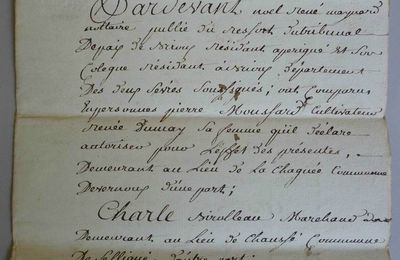 Pardevant noel René maynard
nottaire public du ressort du tribunal
De paix de Résidant a perigné et son
Colegue Résidant a Département
Des Deux Sèvres Soussignés; ont Comparu
En personnes pierre Moussard Cultivateur
Renée Dumay Sa femme qu'il Déclare
autoriser pour L'effet Des présentes,
Demeurant au Lieu de La Chagnée Commune
De vernoux D'une part;
Charle Birolleau Marchand
Demeurant au Lieu de Commune
De part;